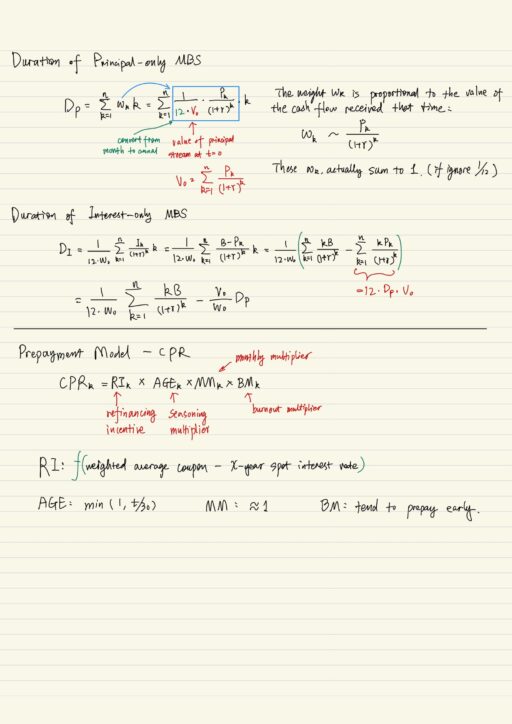 Duration of Principal-only MBS
D_P = ∑_{k=1}^{n} w_k k = ∑_{k=1}^{n} 1/(12·V_0) · P_k/(1+r)^k · k
convert from month to annual
value of principal stream at t=0
V_0 = ∑_{k=1}^{n} P_k/(1+r)^k
The weight W_k is proportional to the value of
the cash flow received that time:
W_k ~ P_k/(1+r)^k
These w_k, actually sum to 1. (if ignore 1/12)
Duration of Interest-only MBS
D_I = 1/(12·W_0) ∑_{k=1}^{n} I_k/(1+r)^k k = 1/(12·W_0) ∑_{k=1}^{n} (B-P_k)/(1+r)^k k = 1/(12·W_0) (∑_{k=1}^{n} kB/(1+r)^k - ∑_{k=1}^{n} kP_k/(1+r)^k)
=12·D_P·V_0
= 1/(12·W_0) ∑_{k=1}^{n} kB/(1+r)^k - V_0/W_0 D_P
Prepayment Model - CPR
monthly multiplier
CPR_k = RI_k × AGE_k × MM_k × BM_k
refinancing incentive
seasoning multiplier
burnout multiplier
RI: f(weighted average coupon - X-year spot interest rate)
AGE: min(1, t/30) MM: ≈1 BM: tend to prepay early.